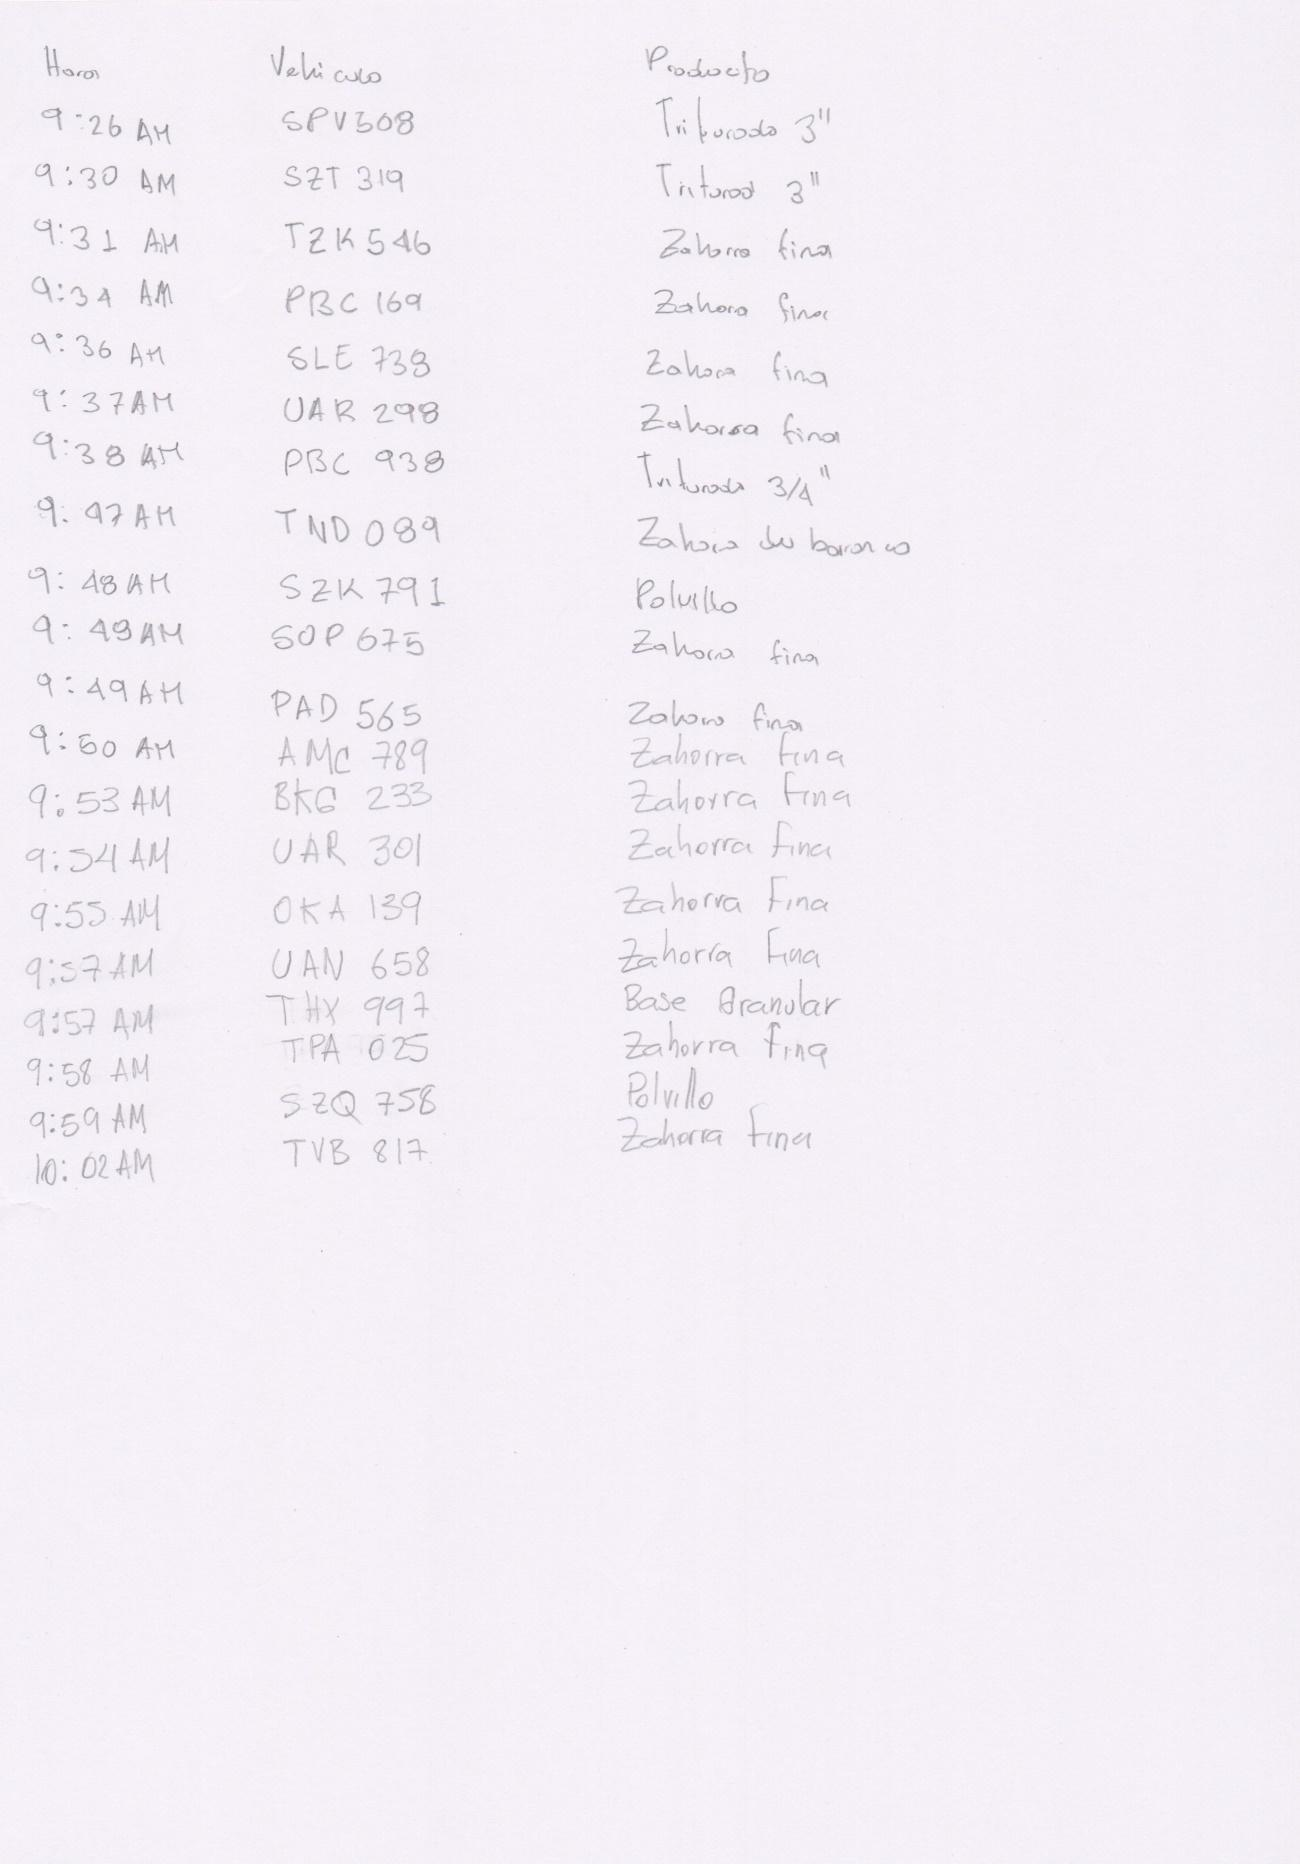 Hora Vehiculo Producto
9:26 AM SPV508 Triturado 3"
9:30 AM SZT 319 Triturad 3"
9:31 AM TZK 546 Zahorra fina
9:34 AM PBC 169 Zahora fina
9:36 AM SLE 738 Zahora fina
9:37AM UAR 298 Zahorra fina
9:38 AM PBC 938 Triturado 3/4"
9:47AM TND 089 Zahora de baranco
9:48AM SZK 791 Polvillo
9:49AM SOP 675 Zahora fina
9:49AM PAD 565 Zahora fina
9:50 AM AMC 789 Zahorra Fina
9:53 AM BKG 233 Zahorra Fina
9:54 AM UAR 301 Zahorra Fina
9:55 AM OKA 139 Zahorra Fina
9:57 AM UAN 658 Zahorra Fina
9:57 AM THX 997 Base Granular
9:58 AM TPA 025 Zahorra Fina
9:59 AM SZQ 758 Polvillo
10:02 AM TVB 817 Zahorra Fina